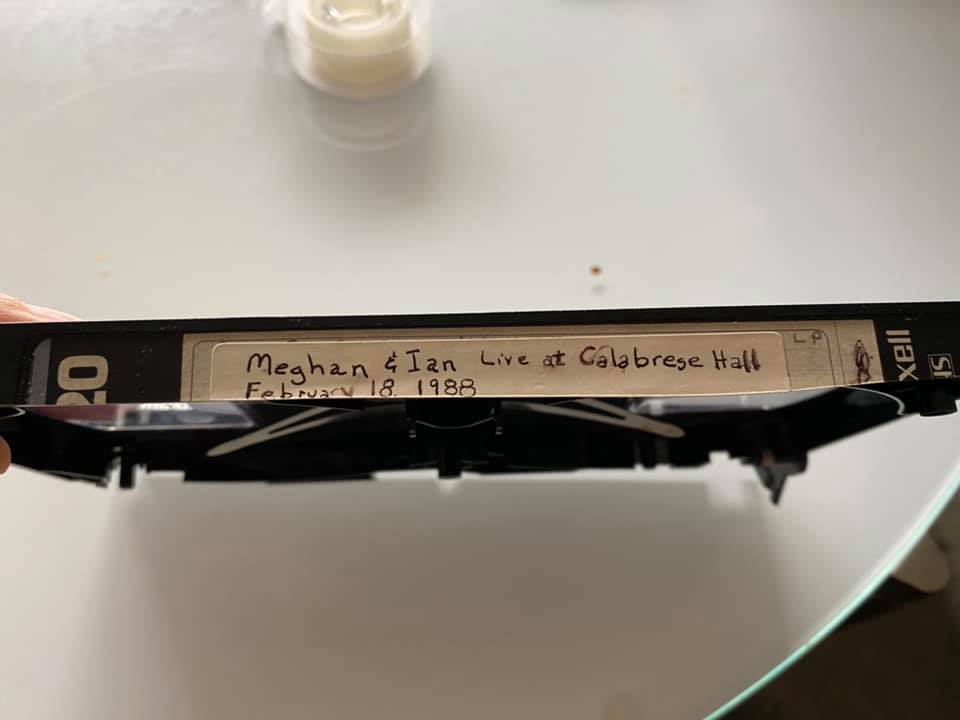 20
Meghan & Ian Live at Calabrese Hall
February 18, 1988
LP
xell